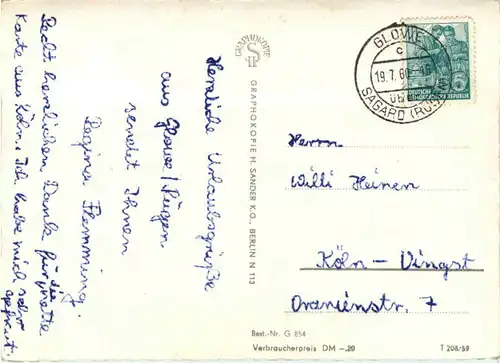 Herzliche Urlaubsgrüße
aus Glowe/Rügen
sendet Ihnen
Regina Flemming.
Recht herzlichen Dank für die nette
Karte aus Köln. Ich habe mich sehr
gefreut.
GRAPHOKOPIE
GRAPHOKOPIE H. SANDER K.G., BERLIN N 113
GLOWE
c
19.7.60
SAGARD (RÜGEN)
DEUTSCHE
DEMOKRATISCHE REPUBLIK
Herrn
Willi Heinen
Köln - Vingst
Oranienstr. 7
Best.-Nr. G 854
Verbraucherpreis DM -.20
T 208/59